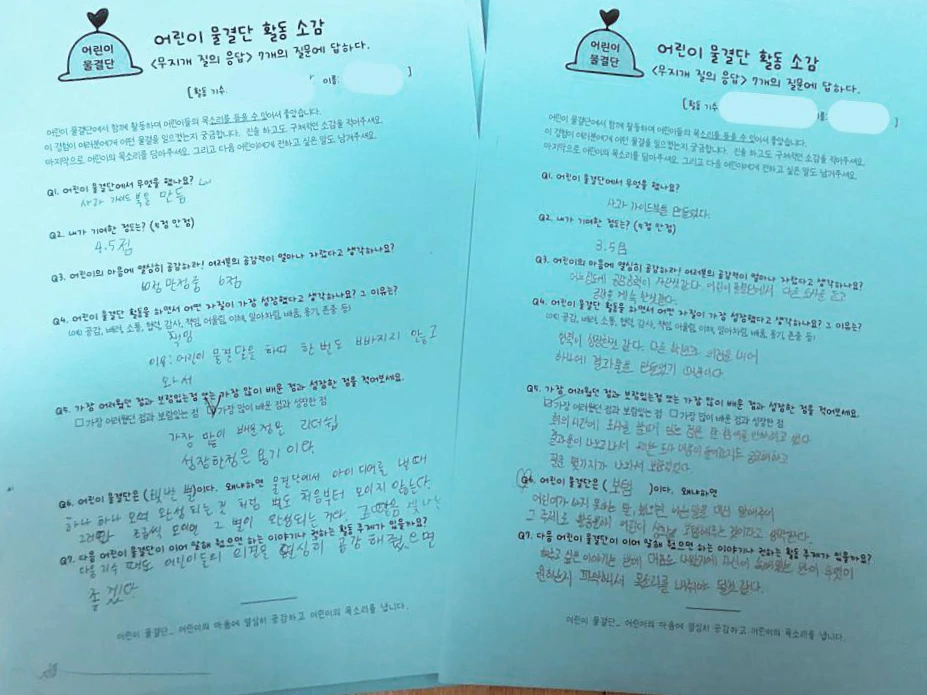 어린이
물결단
어린이 물결단 활동 소감
<무지개 질의 응답> 7개의 질문에 답하다.
[활동 기수: 이름: ]
어린이 물결단에서 함께 활동하며 어린이들의 목소리를 들을 수 있어서 좋았습니다.
이 경험이 여러분에게 어떤 물결을 일으켰는지 궁금합니다. 진솔하고도 구체적인 소감을 적어주세요.
마지막으로 어린이의 목소리를 담아주세요. 그리고 다음 어린이에게 전하고 싶은 말도 남겨주세요.
Q1. 어린이 물결단에서 무엇을 했나요?
사과 가이드 북을 만듦
Q2. 내가 기여한 정도는? (5점 만점)
4.5점
Q3. 어린이의 마음에 열심히 공감하라! 여러분의 공감력이 얼마나 자랐다고 생각하나요?
10점 만점중 6점
Q4. 어린이 물결단 활동을 하면서 어떤 자질이 가장 성장했다고 생각하나요? 그 이유는?
(예) 공감, 배려, 소통, 협력, 감사, 책임, 어울림, 이해, 알아차림, 배움, 용기, 존중 등)
책임
이유: 어린이 물결단을 하며 한 번도 빠지지 않고
와서
Q5. 가장 어려웠던 점과 보람있는점 또는 가장 많이 배운 점과 성장한 점을 적어보세요.
□ 가장 어려웠던 점과 보람있는 점 □ 가장 많이 배운 점과 성장한 점
가장 많이 배운점은 리더쉽
성장한점은 용기 이다.
Q6. 어린이 물결단은 ( 별 )이다. 왜냐하면 물결단에서 아이디어를 낼때
하나 하나 모여 완성 되는 것 처럼 별도 처음부터 모이지 않는다.
그러나 조금씩 모이면 그 별이 완성되는 거다.
Q7. 다음 어린이 물결단이 이어 말해 줬으면 하는 이야기나 전하는 활동 주제가 있을까요?
다음 기수 때도 어린이들의 의견을 열심히 공감 해줬으면
좋겠다.
어린이 물결단_ 어린이의 마음에 열심히 공감하고 어린이의 목소리를 냅니다.
어린이
물결단
어린이 물결단 활동 소감
<무지개 질의 응답> 7개의 질문에 답하다.
[활동 기수 름: ]
어린이 물결단에서 함께 활동하며 어린이들의 목소리를 들을 수 있어서 좋았습니다.
이 경험이 여러분에게 어떤 물결을 일으켰는지 궁금합니다. 진솔하고도 구체적인 소감을 적어주세요.
마지막으로 어린이의 목소리를 담아주세요. 그리고 다음 어린이에게 전하고 싶은 말도 남겨주세요.
Q1. 어린이 물결단에서 무엇을 했나요?
사과 가이드북을 만들었다.
Q2. 내가 기여한 정도는? (5점 만점)
3.5점
Q3. 어린이의 마음에 열심히 공감하라! 여러분의 공감력이 얼마나 자랐다고 생각하나요?
공감능력이 어린이 물결단에서 다른 의견을 듣고
공감을 계속
Q4. 어린이 물결단 활동을 하면서 어떤 자질이 가장 성장했다고 생각하나요? 그 이유는?
(예) 공감, 배려, 소통, 협력, 감사, 책임, 어울림, 이해, 알아차림, 배움, 용기, 존중 등)
협력이 성장한것 같다. 다른 학년과 의견을 내어
하나의 결과물을 만들었기 때문이다
Q5. 가장 어려웠던 점과 보람있는점 또는 가장 많이 배운 점과 성장한 점을 적어보세요.
☑ 가장 어려웠던 점과 보람있는 점 □ 가장 많이 배운 점과 성장한 점
결과물이 나오고 나서
Q6. 어린이 물결단은 ( 보탬 )이다. 왜냐하면
어린이가 하지 못하는 말, 했으면 하는 말을 대신 말해주어
그 주제로 활동을해 어린이 생각한다.
Q7. 다음 어린이 물결단이 이어 말해 줬으면 하는 이야기나 전하는 활동 주제가 있을까요?
하고 싶은 이야기는 무엇이
원하는지 파악해서 목소리를 내줘야 될것 같다.
어린이 물결단_ 어린이의 마음에 열심히 공감하고 어린이의 목소리를 냅니다.